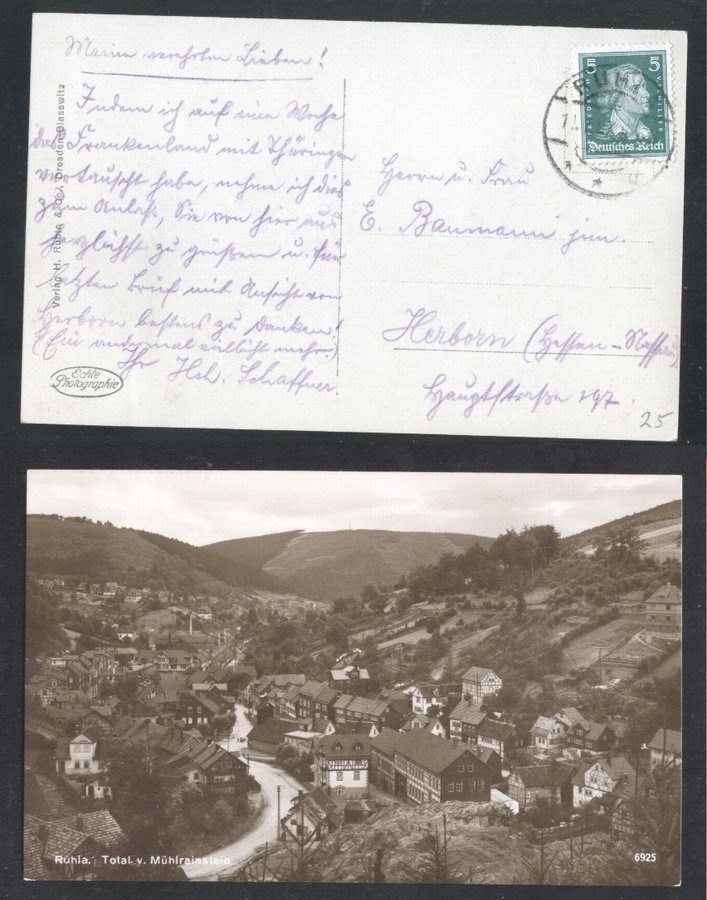 Meine verehrten Lieben!
Indem ich auf eine Woche
das Frankenland mit Thüringen
vertauscht habe, nehme ich dies
zum Anlaß, Sie von hier aus
herzlichst zu grüßen u. für
letzten Brief mit Ansicht von
Herborn bestens zu danken!
(Ein andermal vielleicht mehr)
Ihr Hch. Schaffner.
Verlag H. Rubin & Co., Dresden-Blasewitz
Echte
Photographie
5 5
Deutsches Reich
RUHLA
Herrn u. Frau
E. Baumann jun.
Herborn (Hessen-Nassau)
Hauptstraße 197.
25
Ruhla. Total v. Mühlrainstein
6925